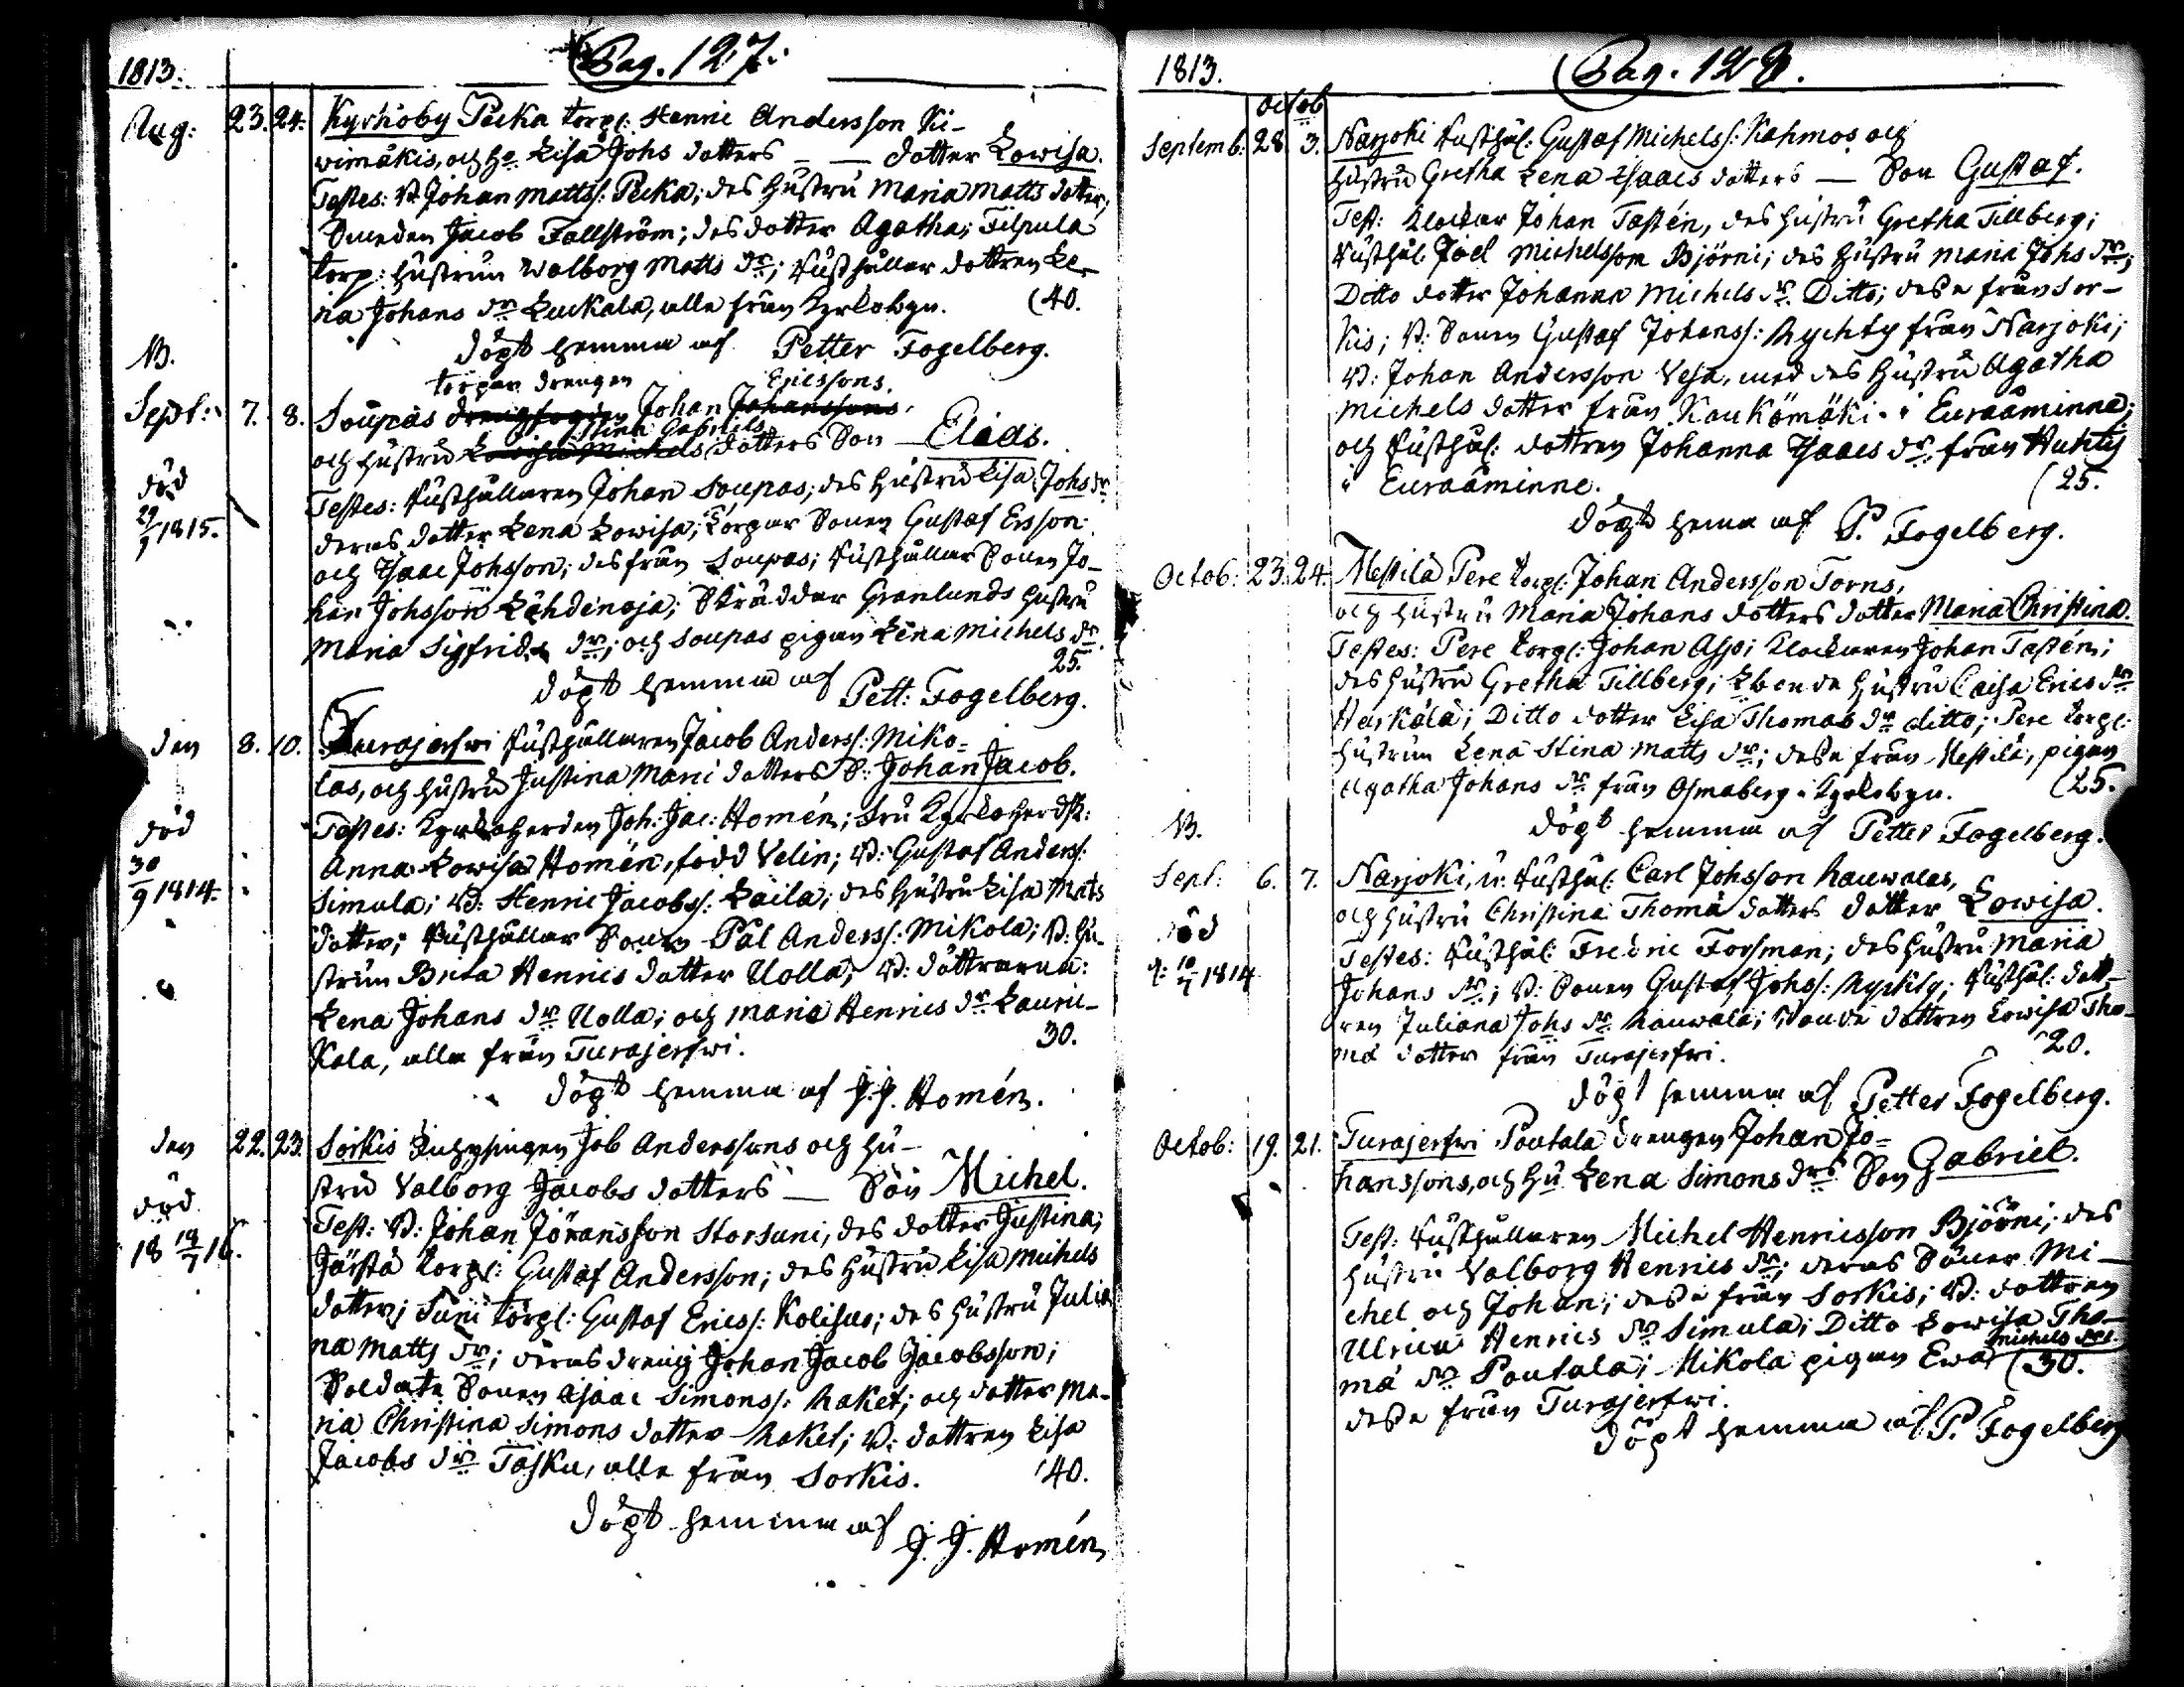 1813.
Pag. 127.
Aug: 23. 24. Kyrkoby Pecka torp: Henric Andersson Ki-
vimäkis, och ho Lisa Johs dotters — dotter Lowisa.
Testes: B: Johan Matts: Pecka; des hustru Maria Matts dotter;
Smeden Jacob Fallström; des dotter Agatha; Filpula
torp: hustrun Walborg Matts dr; Rusthållar dottren Le-
na Johans dr Luckala, alla från Kyrkobyn. (40.
Döpt hemma af Petter Fogelberg.
NB.
torpar drengen Ericssons.
Sept: 7. 8. Soupas Johan Johanssons
Stina Gabriels
och hustru Lowisa Michels dotters Son — Elias.
död
29/7 1815.
Testes: Rusthållaren Johan Soupas; des hustru Lisa Johs dr
deras dotter Lena Lowisa; torpar Sonen Gustaf Ersson
och Isaac Johsson; des från Soupas; Rusthållar Sonen Jo-
han Johsson Lähdenoja; Skräddar Granlunds hustru
Maria Sigfrids dr; och Soupas pigan Lena Michels dr.
25.
Döpt hemma af Pett: Fogelberg.
den 8. 10. Turajerfwi Rusthållaren Jacob Anderss: Miko-
las, och hustru Justina Mari dotters S: Johan Jacob.
död
30/9 1814.
Testes: Kyrkoherden Joh: Jac: Homén; Fru Kyrkoherdsk:
Anna Lowisa Homén, född Velin; B: Gustaf Anderss:
Simula; B: Henric Jacobs: Laila; des hustru Lisa Mats
dotter; Rusthållar Sonen Pål Anderss: Mikola; B: hu-
strun Brita Henrics dotter Uolla; B: döttrarna:
Lena Johans dr Uolla; och Maria Henrics dr Lauri-
kala, alla från Turajerfwi. 30.
Döpt hemma af J. J. Homén.
den 22. 23. Sorkis Inhysingen Job Anderssons och hu-
stru Valborg Jacobs dotters — Son Michel.
död
18 19/7 16.
Test: B: Johan Jöransson Storsuni, des dotter Justina;
Järstä torp: Gustaf Andersson; des hustru Lisa Michels
dotter; Suni torp: Gustaf Erics: Kolisus; des hustru Julia
na Matts dr; deras dreng Johan Jacob Jacobsson;
Soldate Sonen Isaac Simons: Raket; och dotter Ma-
ria Christina Simons dotter Raket; B: dottren Lisa
Jacobs dr Tasku, alla från Sorkis. 40.
Döpt hemma af
J. J. Homén
1813.
Pag. 128.
Octob
Septemb: 28. 3. Narjoki Rusthål: Gustaf Michelss: Kahmos och
hustru Gretha Lena Isaacs dotters — Son Gustaf.
Test: Klockar Johan Tastén, des hustru Gretha Tillberg;
Rusthål: Joel Michelsson Björni; des hustru Maria Johs dr;
Ditto dotter Johanna Michels dr Ditto; desa från Sor-
kis; B: Sonen Gustaf Johans: Rychty från Narjoki;
B: Johan Andersson Vesa, med des hustru Agatha
Michels dotter från Kaukömäki i Euraåminne;
och Rusthål: dottren Johanna Isaacs dr. från Huhti
i Euraåminne. (25.
Döpt hema af P. Fogelberg.
Octob: 23. 24. Mestilä Pere torp: Johan Andersson Torns,
och hustru Maria Johans dotters dotter Maria Christina.
Testes: Pere torp: Johan Asp; Klockaren Johan Tastén;
des hustru Gretha Tillberg; hustru Caisa Erics dr
Harkälä; Ditto dotter Lisa Thomas dr ditto; Pere torp:
hustrun Lena Stina Matts dr; desa från Mestilä, pigan
Agatha Johans dr från Osmaberg i Kyrkobyn. (25.
Döpt hemma af Petter Fogelberg.
NB.
Sept: 6. 7. Narjoki, Rusthål: Carl Johsson Rauwalas,
och hustru Christina Thomä dotters dotter Lowisa.
död
d: 10/7 1814
Testes: Rusthål: Fredric Forsman; des hustru Maria
Johans dr; B: Sonen Gustaf Johs: Rychty; Rusthål: dott-
ren Juliana Johs dr Rauwala; dottren Lowisa Tho-
mä dotter från Turajerfwi. 20.
Döpt hemma af Petter Fogelberg.
Octob: 19. 21. Turajerfwi Pautala drengen Johan Jo-
hanssons, och hu Lena Simons drs Son Gabriel.
Test: Rusthållaren Michel Henricsson Björni; des
hustru Valborg Henrics dr; deras Söner Mi-
chel och Johan; desa från Sorkis; B: dottren
Ulrica Henrics dr Simula; Ditto Lowisa Tho-
Michels dr
mä dr Pautala; Mikola pigan Ewa (30.
desa från Turajerfwi.
Döpt hemma af P. Fogelberg